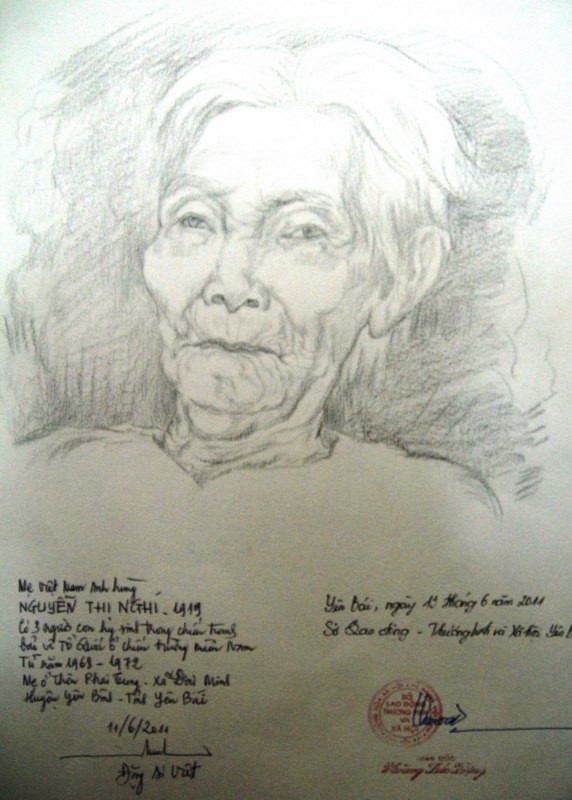 Mẹ Việt Nam Anh hùng
NGUYỄN THỊ NGHỊ - 1919
Có 3 người con hy sinh trong chiến tranh
Bảo vệ Tổ Quốc ở chiến trường miền Nam
Từ năm 1968 - 1972
Mẹ ở Thôn Phai Tung - Xã Đại Minh
Huyện Yên Bình - Tỉnh Yên Bái
11/6/2011
Đặng Ái Việt
Yên Bái, ngày 13 tháng 6 năm 2011
Sở Lao động - Thương binh và Xã hội Yên B
SỞ
LAO ĐỘNG
THƯƠNG BINH
VÀ
XÃ HỘI
GIÁM ĐỐC